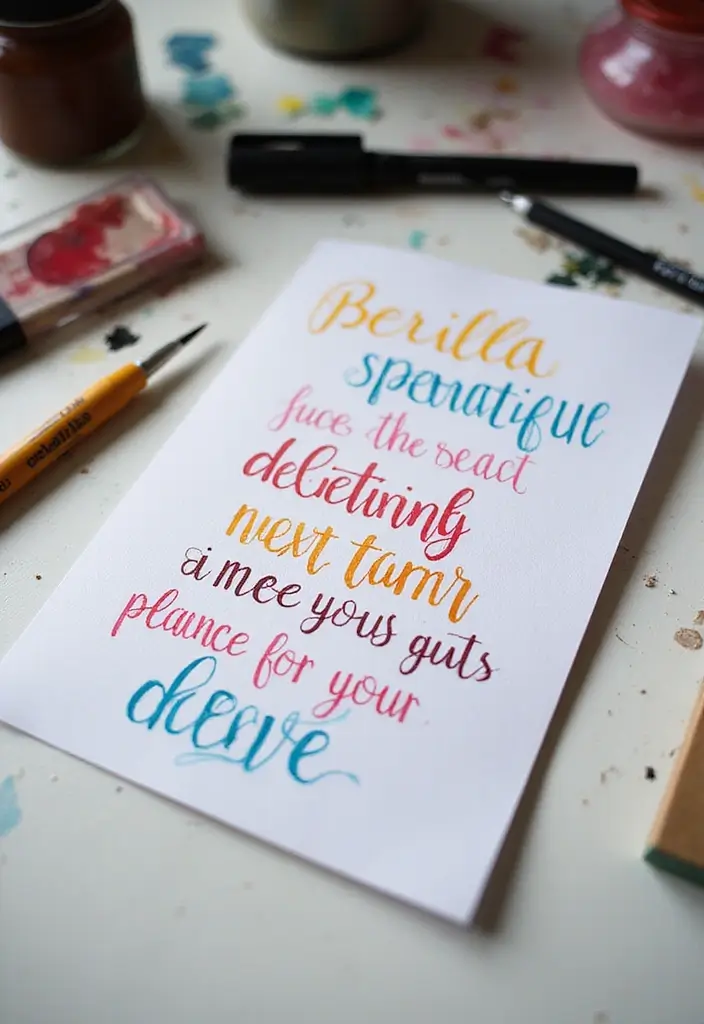 Berilla
speratiful
fuce the seact
delietining
next tamr
a mee yous guts
plaunce for your
cheerve